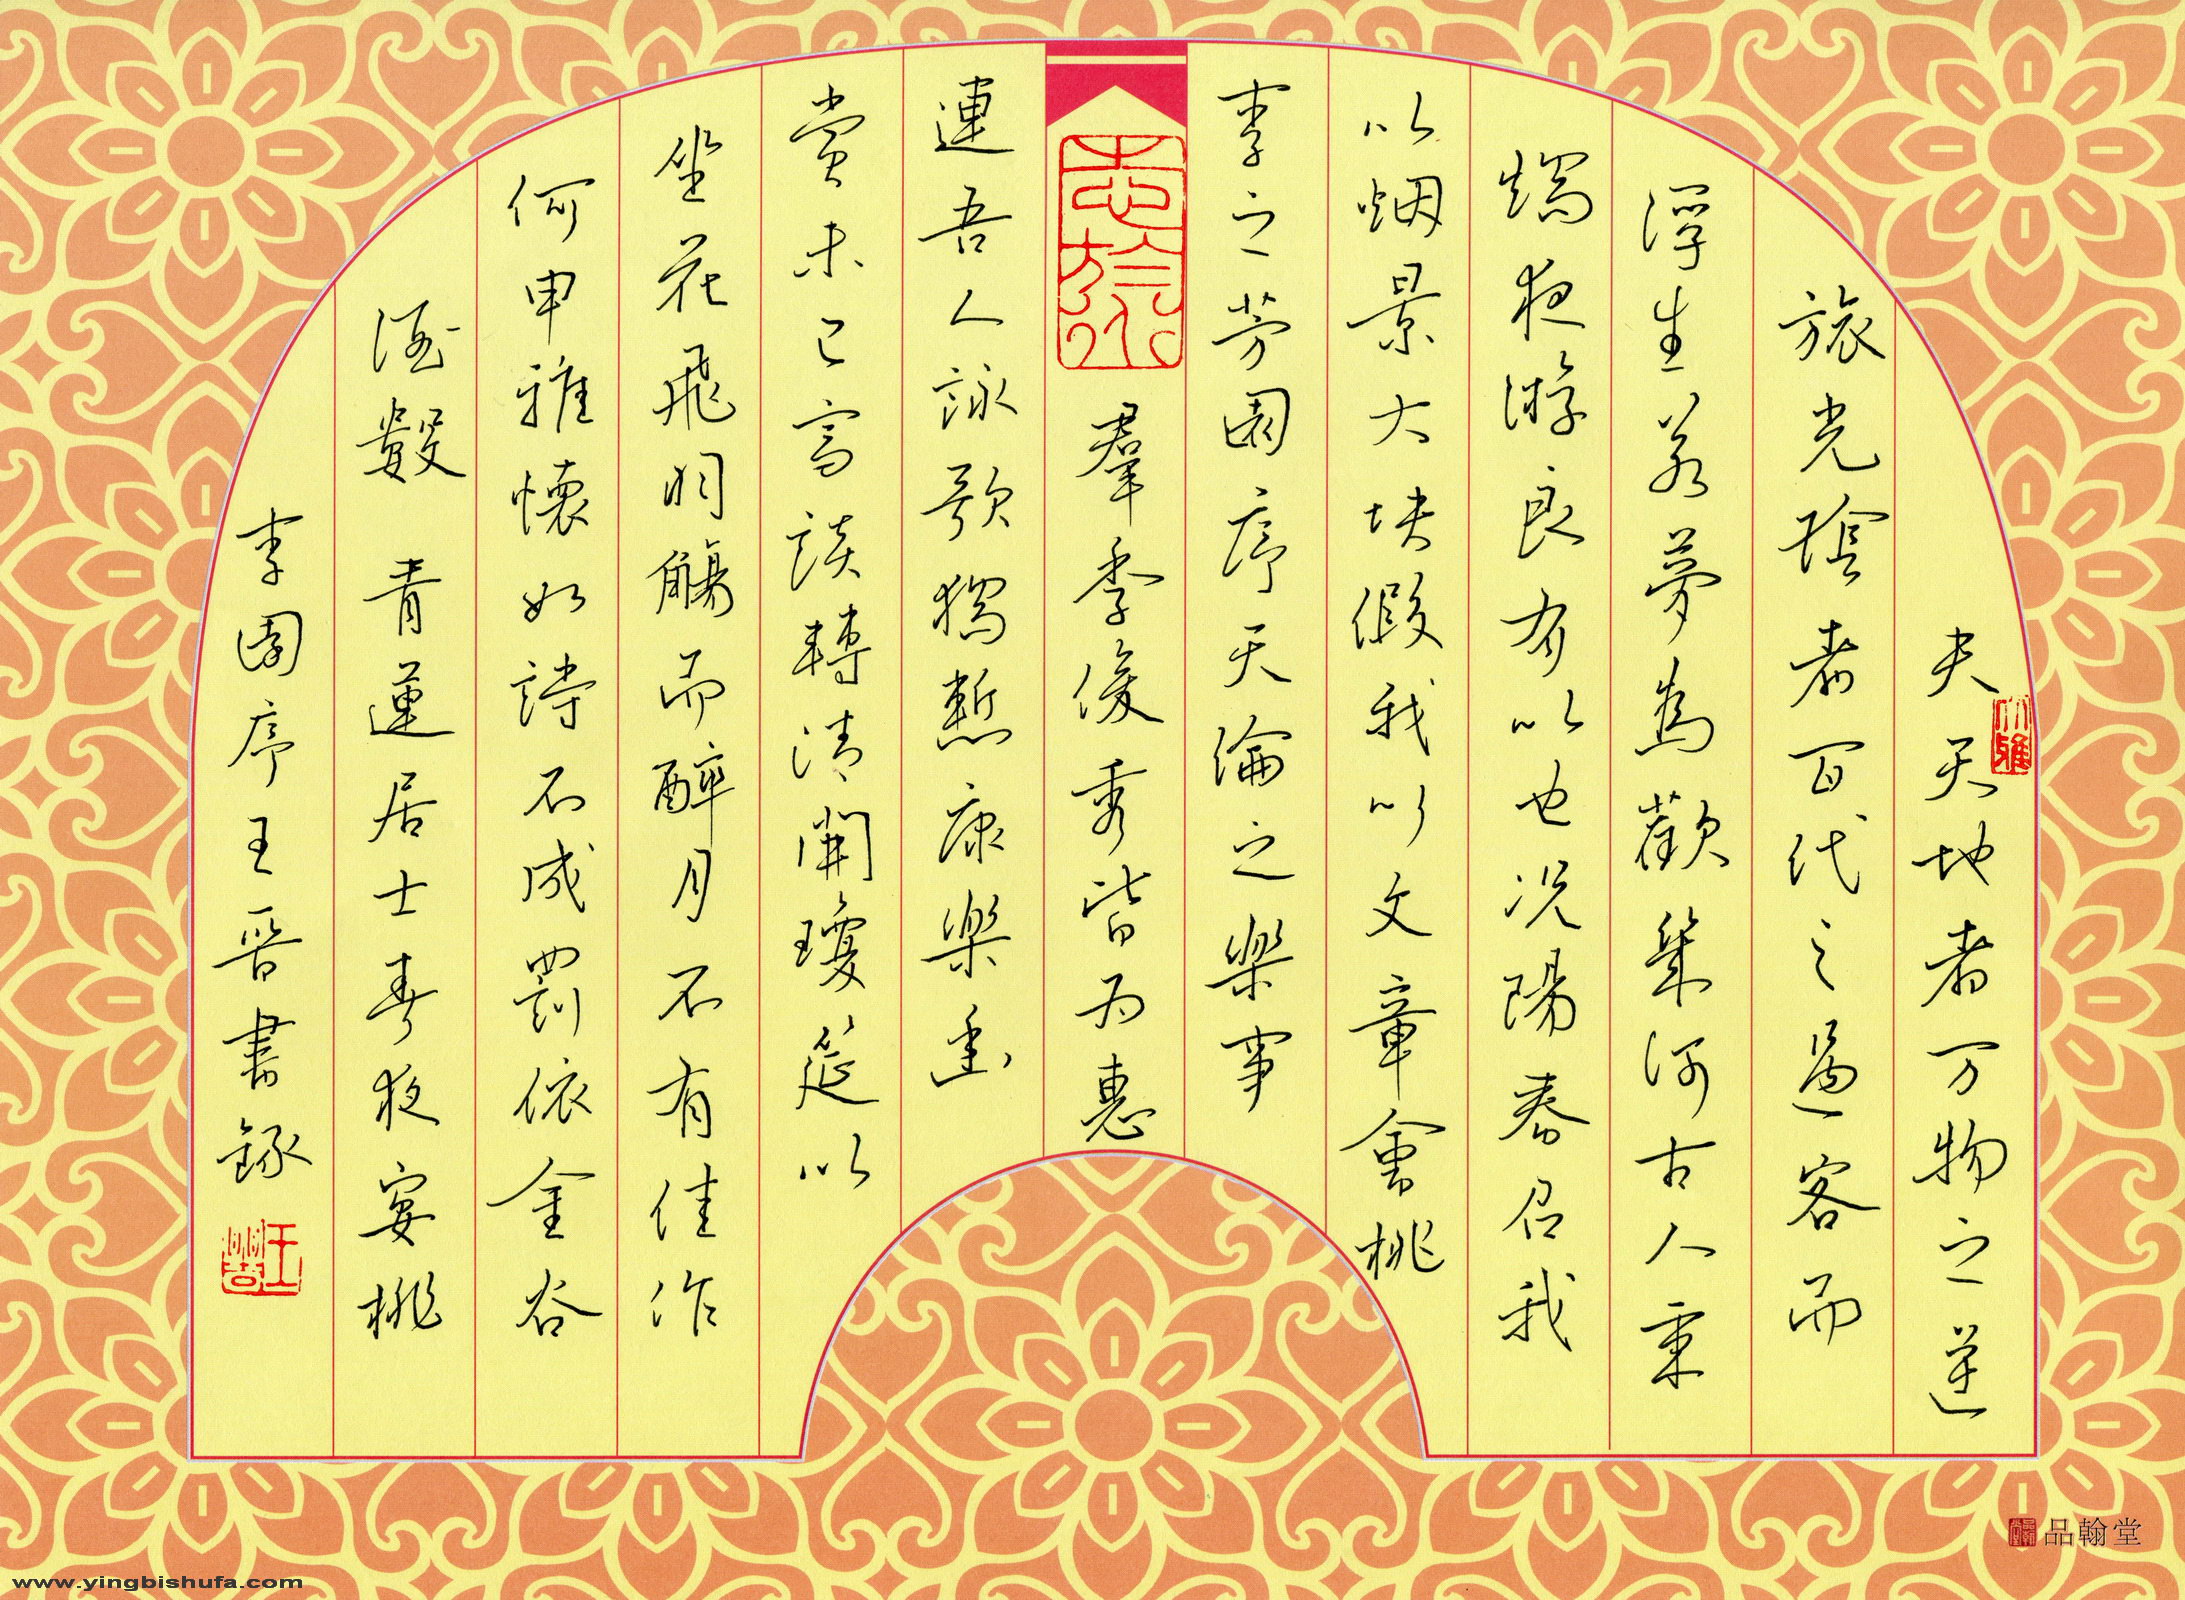 夫天地者万物之逆
旅光陰者百代之過客而
浮生若夢為歡幾何古人秉
燭夜游良有以也况陽春召我
以烟景大块假我以文章會桃
李之芳園序天倫之樂事
群季俊秀皆为惠
連吾人詠歌獨慙康樂幽
賞未已高談轉清開瓊筵以
坐花飛羽觴而醉月不有佳作
何申雅懷如詩不成罰依金谷
酒數 青蓮居士春夜宴桃
李園序王晋書録
大雅
王晋
品翰堂
www.yingbishufa.com